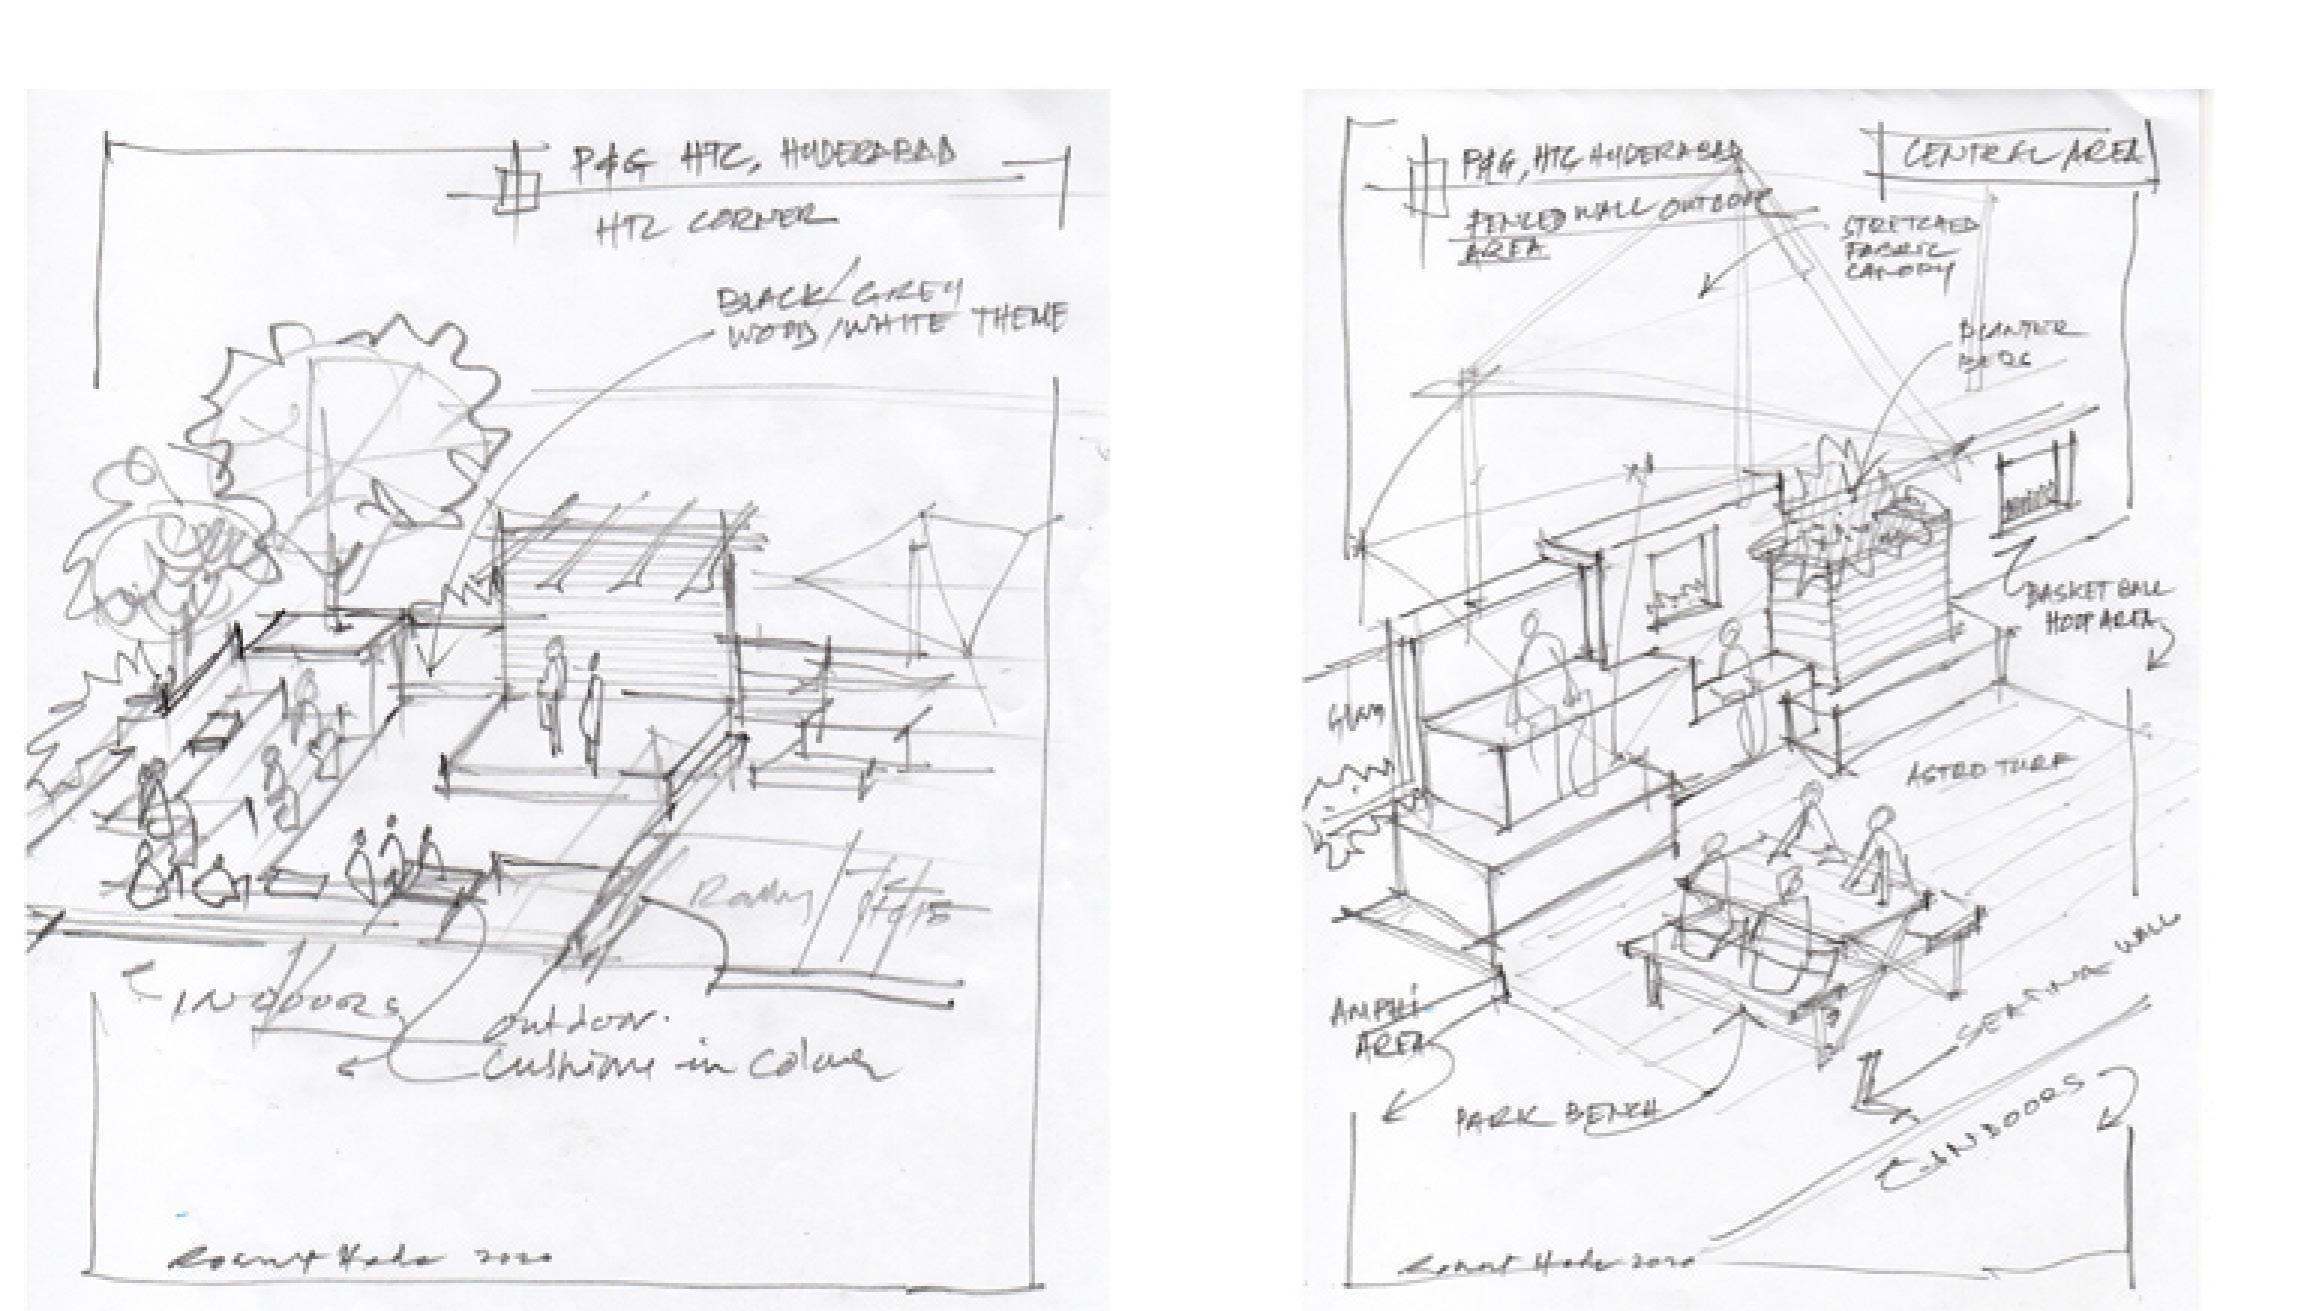 P&G HTC, HYDERABAD
HTC CORNER
BLACK/GREY
WOOD/WHITE THEME
INDOORS
outdoor
Cushions in Colour
2020
P&G, HTC HYDERABAD
CENTRAL AREA
FENCED WALL OUTDOOR
AREA
STRETCHED
FABRIC
CANOPY
PLANTER
BEDS
BASKET BALL
HOOP AREA
ASTRO TURF
AMPHI
AREA
SEATING WALL
PARK BENCH
INDOORS
2020